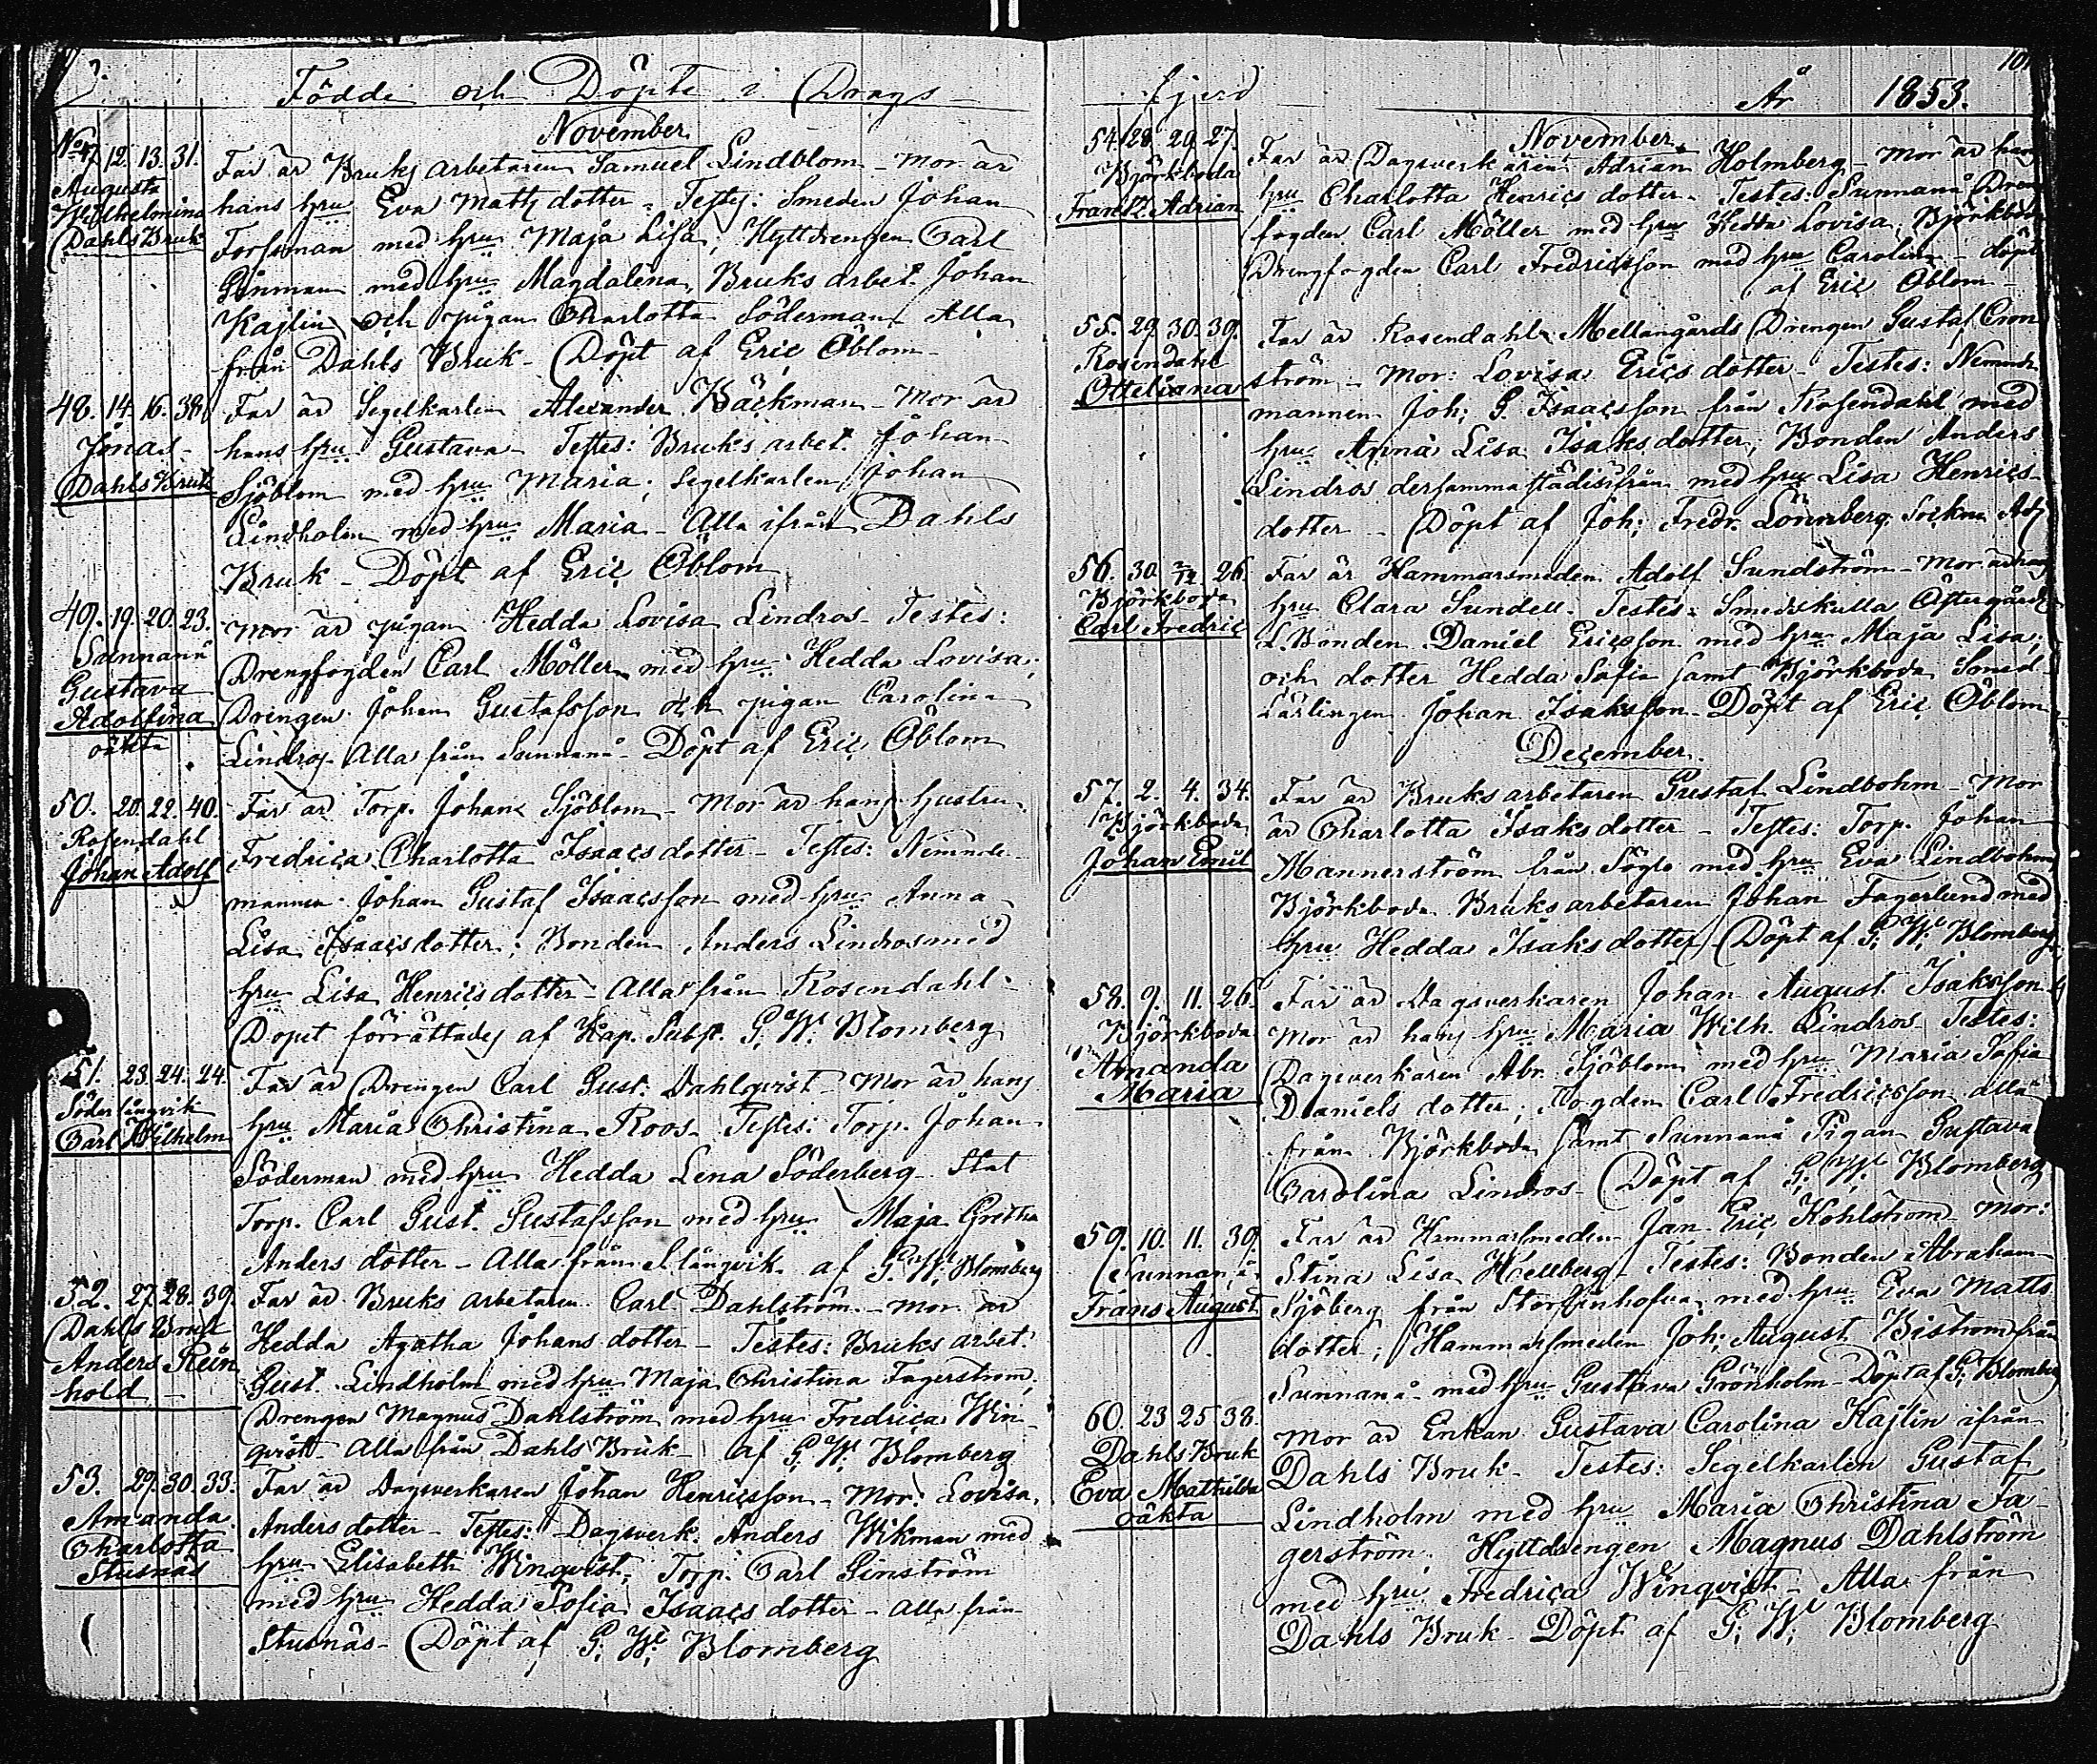 Födde och Döpte i Drags-
November
No 47 12. 13. 31.
Augusta
Wilhelmina
Dahls Bruk
Far är Bruks arbetaren Samuel Lindblom - Mor är
hans hru Eva Matts dotter - Testes: Smeden Johan
Forsman med hru Maja Lisa, Hyttdrengen Carl
med hru Magdalena, Bruks arbet. Johan
Kajlin och pigan Charlotta Söderman - Alla
från Dahls Bruk - Döpt af Eric Öblom -
48. 14. 16. 38.
Jonas -
Dahls Bruk
Far är Segelkarlen Alexander Bäckman - Mor är
hans hru Gustava - Testes: Bruks arbet. Johan
Sjöblom med hru Maria; Segelkarlen Johan
Lindholm med hru Maria - Alla ifrån Dahls
Bruk - Döpt af Eric Öblom
49. 19. 20. 23.
Sunnanå
Gustava
Adolfina
oäkta
Mor är pigan Hedda Lovisa Lindros - Testes:
Drengfogden Carl Möller med hru Hedda Lovisa;
Drengen Johan Gustafsson och pigan Carolina
Lindros - Alla från Sunnanå - Döpt af Eric Öblom
50. 20. 22. 40.
Rosendahl
Johan Adolf
Far är Torp. Johan Sjöblom - Mor är hans hustru
Fredrica Charlotta Isaacs dotter - Testes: Nemnde-
mannen Johan Gustaf Isaacsson med hru Anna
Lisa Isaacs dotter; Bonden Anders Lindros med
hru Lisa Henrics dotter - Alla från Rosendahl -
Döpet förrättades af Kap. Subst. G. W. Blomberg
51. 23. 24. 24.
Söderlångvik
Carl Wilhelm
Far är Drengen Carl Gust. Dahlqvist - Mor är hans
hru Maria Christina Roos - Testes: Torp. Johan
Söderman med hru Hedda Lena Söderberg - Stat
Torp. Carl Gust. Gustafsson med hru Maja Gretha
Anders dotter - Alla från S långvik - af G. W. Blomberg
52. 27. 28. 39.
Dahls Bruk
Anders Rein
hold -
Far är Bruks arbetaren Carl Dahlström - Mor är
Hedda Agatha Johans dotter - Testes: Bruks arbet.
Gust. Lindholm med hru Maja Christina Fagerström,
Drengen Magnus Dahlström med hru Fredrica Win-
qvist - Alla från Dahls Bruk - af G. W. Blomberg
53. 29. 30. 33.
Amanda
Charlotta
Stusnäs
Far är Dagsverkaren Johan Henricsson - Mor: Lovisa
Anders dotter - Testes: Dagsverk. Anders Wikman med
hru Elisabeth Winqvist; Torp. Carl Sinström
med hru Hedda Sofia Isaacs dotter - Alla från
Stusnäs - Döpt af G. W. Blomberg
fjerd År 1853.
November
54. 28. 29. 27.
Björkboda
Frantz Adrian
Far är Dagsverkaren Adrian Holmberg - Mor är hans
hru Charlotta Henrics dotter - Testes: Sunnanå Dreng
fogden Carl Möller med hru Hedda Lovisa; Björkboda
Drengfogden Carl Fredricsson med hru Carolina - döpt
af Eric Öblom -
55. 29. 30. 39.
Rosendahl
Otteliana
Far är Rosendahls Mellangårds Drengen Gustaf Cron
ström - Mor: Lovisa Erics dotter - Testes: Nemnde
mannen Joh: G. Isaacsson från Rosendahl med
hru Anna Lisa Isaks dotter; Bonden Anders
Lindros dersammastädes ifrån med hru Lisa Henrics-
dotter - Döpt af Joh: Fredr. Lönnberg Sockne Adj
56. 30. 2/12 26.
Björkboda
Carl Fredric
Far är Hammarsmeden Adolf Sundström - Mor är hans
hru Clara Sundell - Testes: Smedskulla Östergårds
L. Bonden Daniel Ericsson med hru Maja Lisa;
och dotter Hedda Sofia samt Björkboda Smed-
Lärlingen Johan Isaksson - Döpt af Eric Öblom
December
57. 2. 4. 34.
Björkboda
Johan Emil
Far är Bruksarbetaren Gustaf Lindbohm - Mor
är Charlotta Isaks dotter - Testes: Torp. Johan
Mannerström från Söglo med hru Eva Lindbohm,
Björkboda Bruksarbetaren Johan Fagerlund med
hru Hedda Isaks dotter - Döpt af G. W. Blomberg
58. 9. 11. 26.
Björkboda
Amanda
Maria
Far är Dagsverkaren Johan August Isaksson
Mor är hans hru Maria Wilh. Lindros - Testes:
Dagsverkaren Abr. Sjöblom med hru Maria Sofia
Daniels dotter; Fogden Carl Fredricsson alla
från Björkboda samt Sunnanå Pigan Gustava
Carolina Lindros - Döpt af G. W. Blomberg
59. 10. 11. 39.
Sunnanå
Frans August
Far är Hammarsmeden Jan Eric Kohlström - Mor:
Stina Lisa Hellberg - Testes: Bonden Abraham
Sjöberg från Storfinhofva med hru Eva Matts
dotter; Hammarsmeden Joh: August Biström från
Sunnanå med hru Gustava Grönholm - Döpt af G. Blomberg
60. 23 25 38.
Dahls Bruk
Eva Mathilda
oäkta
Mor är Enkan Gustava Carolina Kajlin ifrån
Dahls Bruk - Testes: Segelkarlen Gustaf
Lindholm med hru Maria Christina Fa-
gerström; Hyttdrengen Magnus Dahlström
med hru Fredrica Winqvist - Alla från
Dahls Bruk - Döpt af G. W. Blomberg